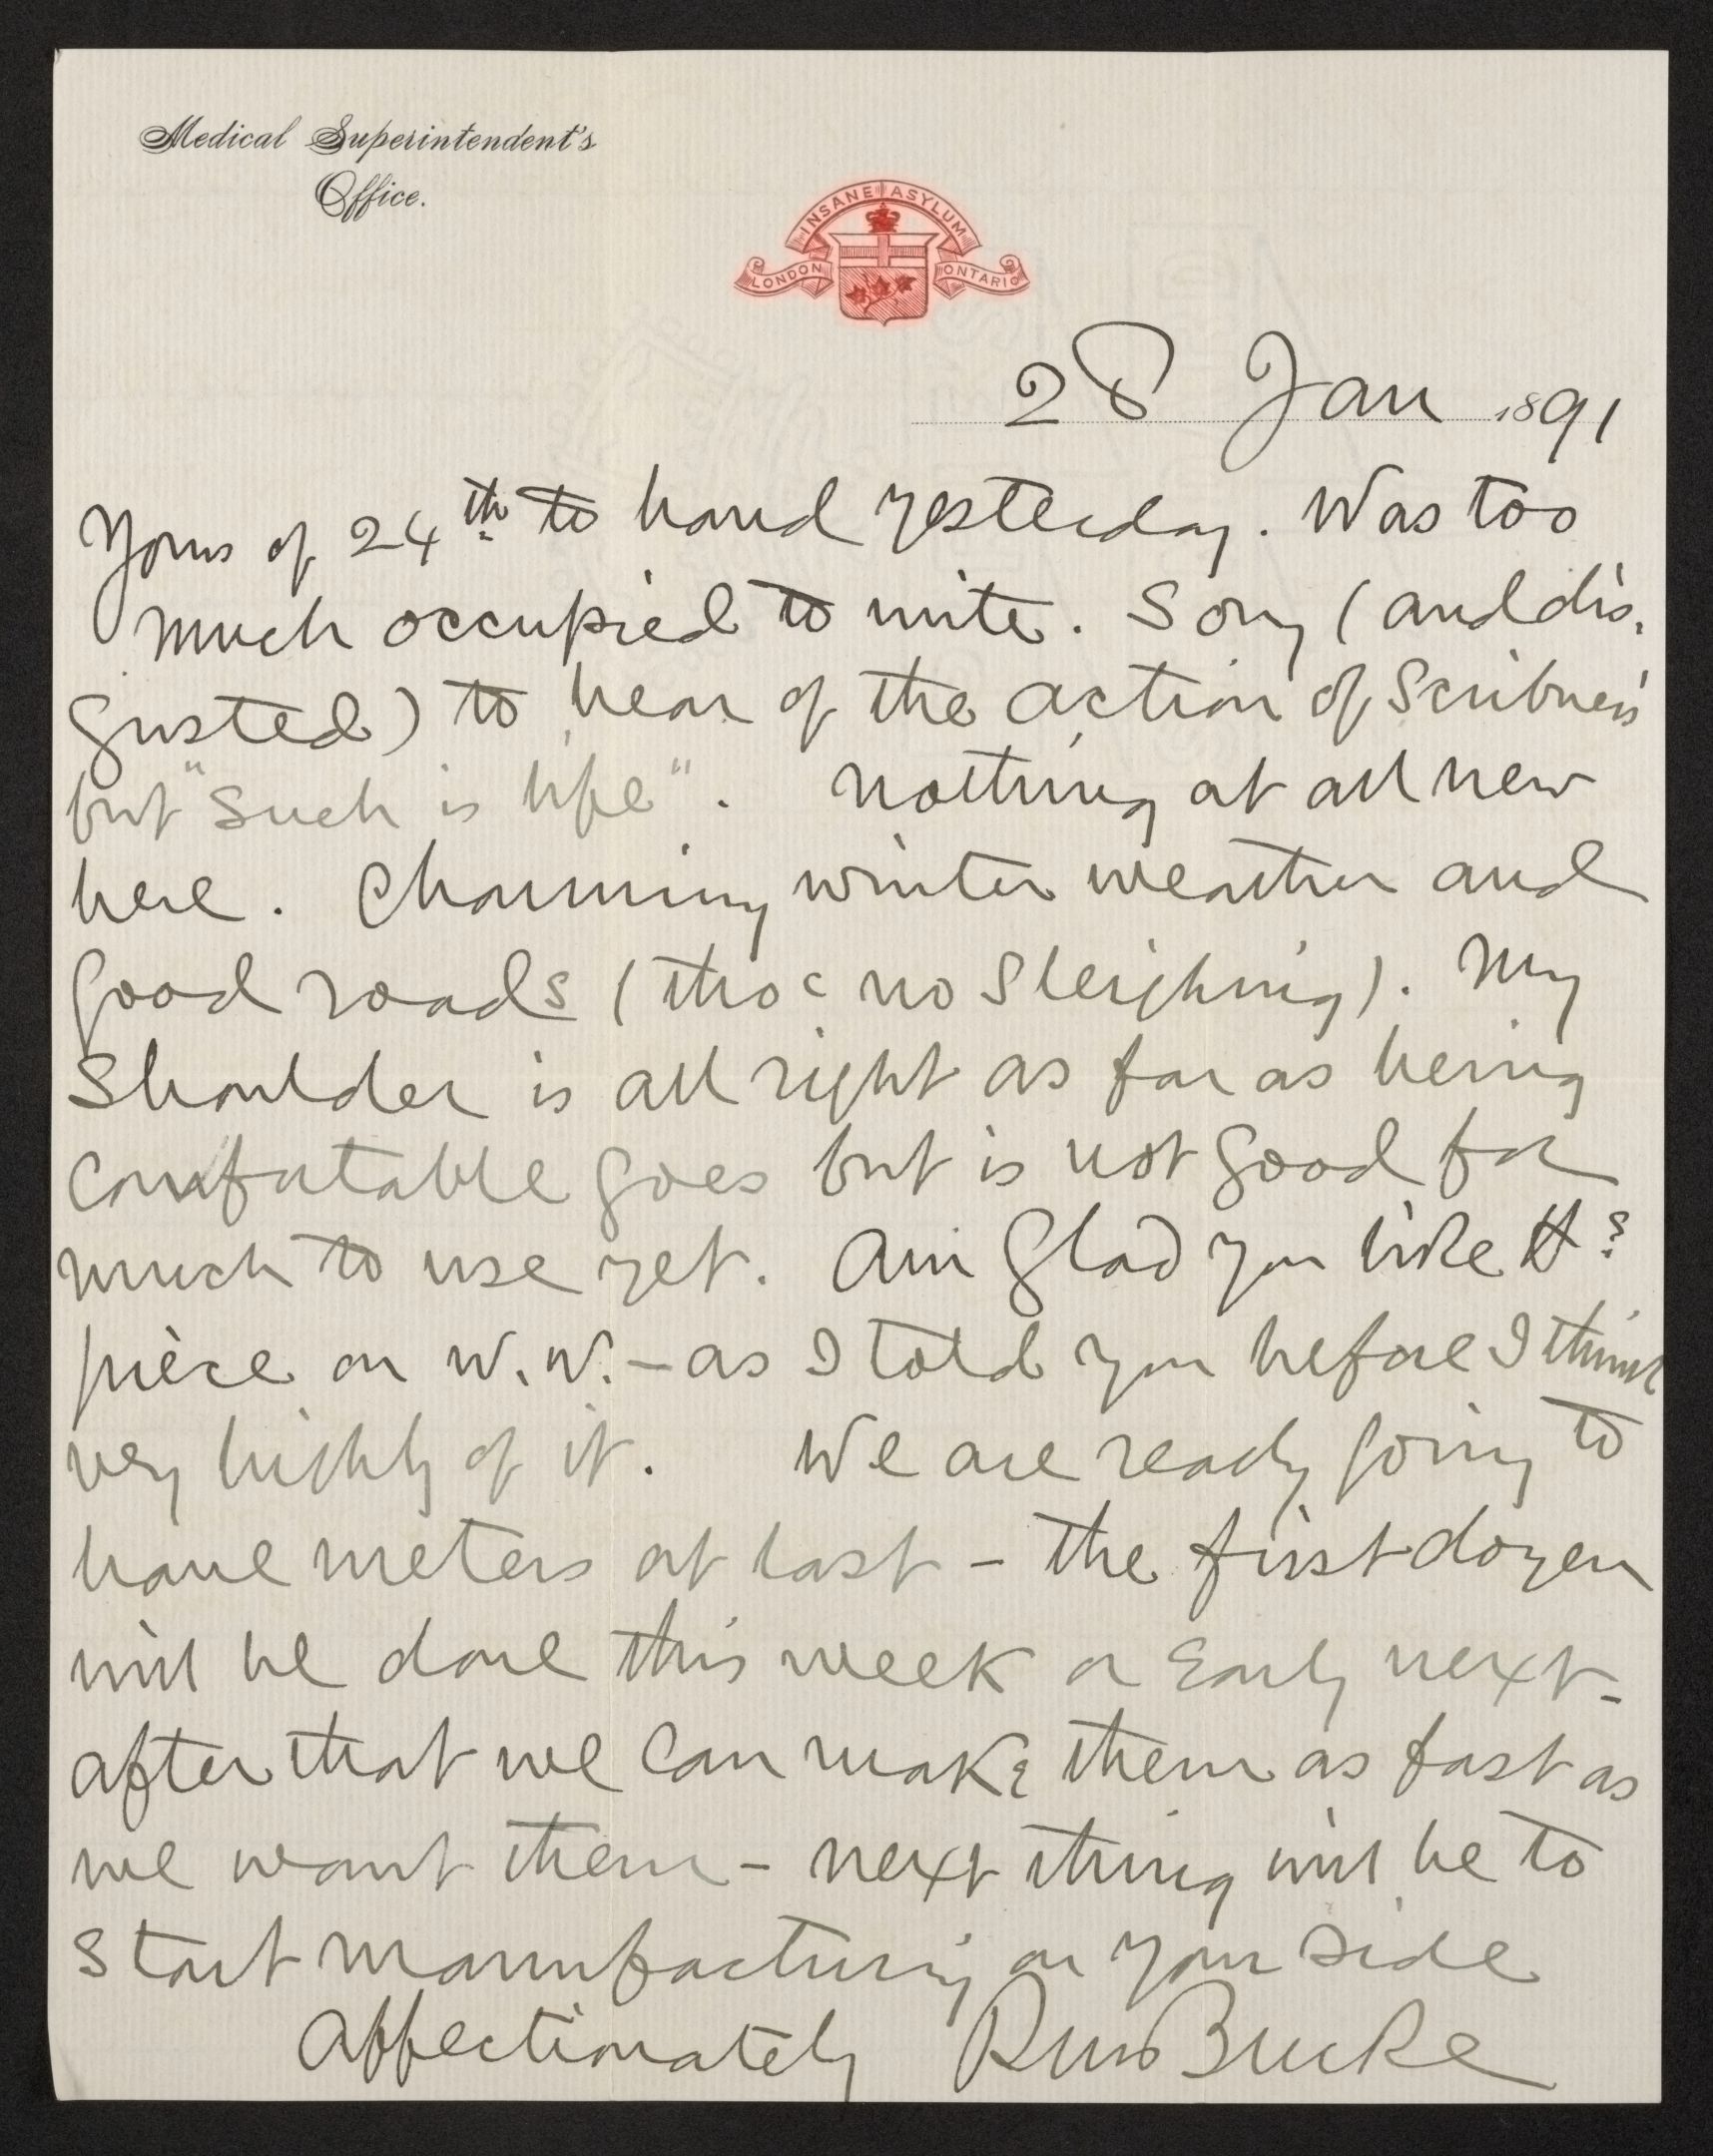 Medical Superintendent's
Office.
INSANE ASYLUM
LONDON ONTARIO
28 Jan 1891
Yours of 24th to hand yesterday. Was too
much occupied to write. Sorry (and dis-
gusted) to hear of the action of Scribner's
but "such is life". Nothing at all new
here. Charming winter weather and
good roads (tho' no sleighing). My
shoulder is all right as far as being
comfortable goes but is not good for
much to use yet. Am glad you like
piece on W. W. — as I told you before I think
very highly of it. We are ready going to
have meters at last — the first dozen
will be done this week or early next —
after that we can make them as fast as
we want them — next thing will be to
start manufacturing on your side
Affectionately RM Bucke